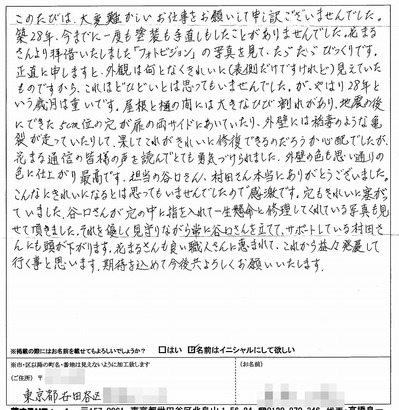 このたびは、大変難かしいお仕事をお願いして申し訳ございませんでした。
築28年、今までに一度も塗装も手直しもしたことがありませんでした。花まる
さんより拝借いたしました「フォトビジョン」の写真を見て、ただただびっくりです。
正直に申しますと、外観は何となくきれいに(表側だけですけれど)見えていた
ものですから、これほどひどいとは思ってもいませんでした。が、やはり28年と
いう歳月は重いです。屋根と樋の間には大きなひび割れがあり、地震の後
にできた5cm位の穴が扉の両サイドにあいていたり、外壁には稲妻のような亀
裂が走っていたりして、果してこれがきれいに修復できるのだろうか心配でしたが、
花まる通信の皆様の声を読んでとても勇気づけられました。外壁の色も思い通りの
色に仕上がり最高です。担当の谷口さん、村田さん本当にありがとうございました。
こんなにきれいになるとは思ってもいませんでしたので感激です。穴もきれいに塞がっ
ていました。谷口さんが穴の中に指を入れて一生懸命に修理してくれている写真も見
せて頂きました。それを優しく見守りながら常に谷口さんを立てて、サポートしている村田さ
んにも頭が下がります。花まるさんも良い職人さんに恵まれて、これから益々発展して
行く事と思います。期待を込めて今後共よろしくお願いいたします。
※掲載の際にはお名前を載せてもよろしいでしょうか? □はい ☑名前はイニシャルにして欲しい
※市・区以降の町名・番地は見えないように加工致します
(ご住所) 〒
(お名前)
東京都世田谷区